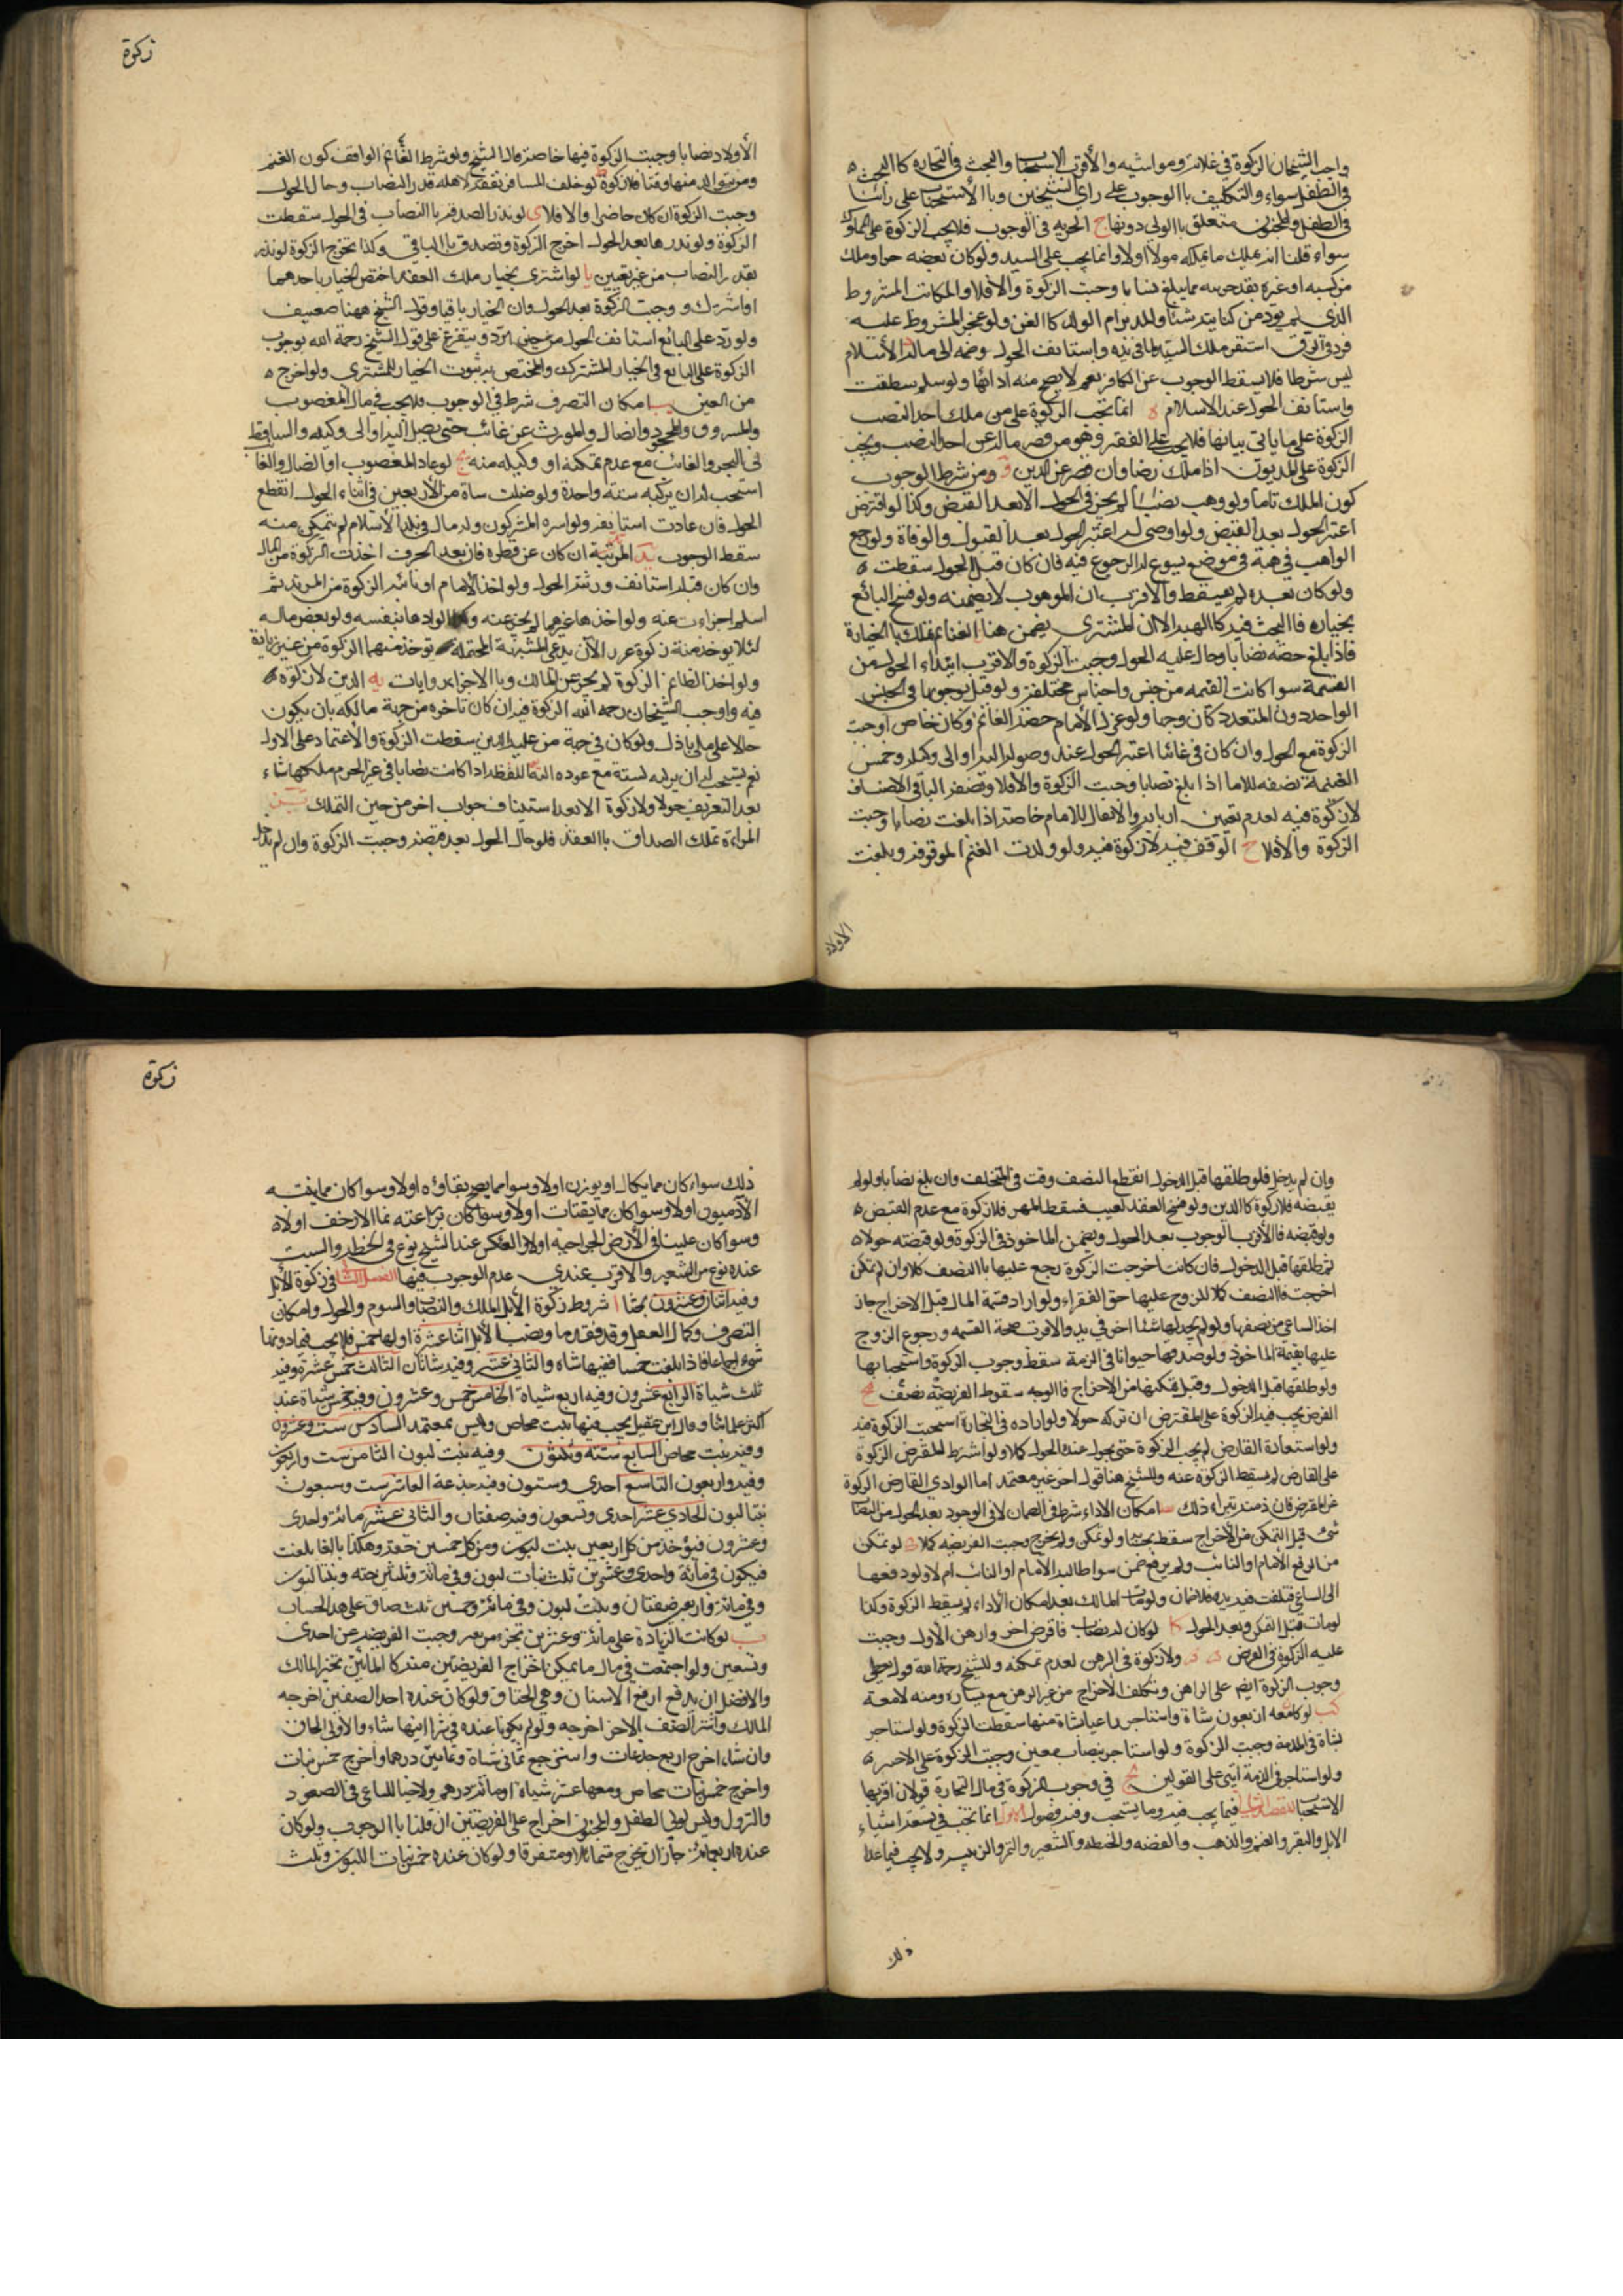 زكوة
واجب الشيخان الزكوة في غلاته ومواشيه والأقرب الاستحباب والبحث في التجارة كاالبحث
في الطفل سواء والتكليف باالوجوب على راي الشيخين وباالأستحباب على رأينا
في الطفل والمجنون متعلق باالولى دونهما ج الحرية في الوجوب فلا يجب الزكوة على المملوك
سواء قلنا انه يملك ما يملكه مولاه اولا وانما يجب على السيد ولو كان بعضه حرا وملك
من كسبه او غيره بقدر حريته مما يبلغ نصابا وجبت الزكوة والافلا والمكاتب المشروط
الذي لم يود من كتابته شيئا والمدبر وام الولد كاالقن ولو عجز المشروط عليه
فرد في الرق استقر ملك السيد لما في يده واستانف الحول وضمه الى ماله د الأسلام
ليس شرطا فلا يسقط الوجوب عن الكافر نعم لا يصح منه ادائها ولو سلم سقطت
واستانف الحول عند الاسلام ه انما تجب الزكوة على من ملك احد النصب
الزكوة على ما ياتي بيانها فلا يجب على الفقير وهو من قصر ماله عن احد النصب ويجب
الزكوة على المديون اذا ملك نصابا وان قصر عن الدين و ومن شرط الوجوب
كون الملك تاما ولو وهب نصابا لم يجز في الحول الابعد القبض وكذا لو اقترض
اعتبر الحول بعد القبض ولو اوصى له اعتبر الحول بعد القبول والوفاة ولو رجع
الواهب في هبة في موضع يسوغ له الرجوع فيه فان كان قبل الحول سقطت
ولو كان بعده لم يسقط والاقرب ان الموهوب لا يضمنه ولو فسخ البائع
بخياره فاالبحث فيه كاالهبة الا ان المشتري يضمن هنا الغنائم تملك باالحيازة
فاذا بلغ حصته نصابا وحال عليه الحول وجبت الزكوة والاقرب ابتداء الحول من
القسمة سوا كانت القسمه من جنس واجناس مختلفة ولو قيل بوجوبها في الجنس
الواحد دون المتعدد كان وجها ولو عزل الأمام حصة الغانم وكان حاضرا وجبت
الزكوة مع الحول وان كان غائبا اعتبر الحول عند وصوله اليه او الى وكيله وخمس
الغنيمة نصفه للامام اذا بلغ نصابا وجبت الزكوة والافلا ونصفه الباقي للاصناف
لا زكوة فيه لعدم تعيين اربابه والانفال للامام خاصة اذا بلغت نصابا وجبت
الزكوة والافلا ح الوقف فيه لا زكوة فيه ولو ولدت الغنم الموقوفه وبلغت
الاولاد
الأولاد نصابا وجبت الزكوة فيها خاصة قال الشيخ ولو شرط الواقف كون الغنم
وما يتوالد منها وقفا فلا زكوة ط لو خلف المسافر نفقة لاهله قدر النصاب وحال الحول
وجبت الزكوة ان كان حاضرا والافلا ى لو نذر الصدقه باالنصاب في الحول سقطت
الزكوة ولو نذرها بعد الحول اخرج الزكوة وتصدق باالباقي وكذا يخرج الزكوة لو نذر
بقدر النصاب من غير تعيين يا لو اشترى بخيار ملك العقد اختص الخيار باحدهما
او اشترك ووجبت الزكوة بعد الحول وان الخيار باقيا وقول الشيخ ههنا ضعيف
ولو رد على البائع استانف الحول من حين الرد ويتفرع على قول الشيخ رحمة الله بوجوب
الزكوة على البايع في الخيار المشترك والمختص به ثبوت الخيار للمشتري ولو اخرج
من العين يب امكان التصرف شرط في الوجوب فلا يجب في مال المغصوب
والمسروق والمجحود والضال والمورث عن غائب حتى يصل اليه او الى وكيله والساقط
في البحر والغائب مع عدم تمكنه او وكيله منه يج لو عاد المغصوب او الضال والغائب
استحب له ان يزكيه سنة واحدة ولو ضلت ساة من الأربعين في اثناء الحول انقطع
الحول فان عادت استانف ولو اسره المشركون وله مال في بلد الأسلام لم يتمكن منه
سقط الوجوب يد المرتد ان كان عن فطره فان بعد الحول اخذت الزكوة من المال
وان كان قبله استانف ورثته الحول ولو اخذ الأمام او نائبه الزكوة من المرتد ثم
اسلم اجزاءت عنه ولو اخذها غيرهما لم يجز عنه ولو اداها بنفسه ولو بعض ماله
ولو اخذ الظالم الزكوة لم يجز عن المالك وباالاجزاء روايات يه الدين لا زكوة
فيه واوجب الشيخان رحمه الله الزكوة فيه ان كان تاخره من جهة مالكه بان يكون
حالا على ملى باذل ولو كان في جهة من عليه الدين سقطت الزكوة والأعتماد على الاول
نعم يستحب له ان يزكيه لسنة مع عوده اليه اللقطه اذا كانت نصابا في غير الحرم ملكها شاء
بعد التعريف حولا ولا زكوة الابعد استيناف حول اخر من حين التملك
المراءة تملك الصداق باالعقد فلو حال الحول بعد قبضه وجبت الزكوة وان لم يدخل
زكوة
وان لم يدخل فلو طلقها قبل الدخول انقطع النصف وقت في المتخلف وان بلغ نصابا ولو لم
يقبضه فلا زكوة كاالدين ولو فسخ العقد لعيب فسقط المهر فلا زكوة مع عدم القبض
ولو قبضه فاالأقرب الوجوب بعد الحول ويضمن الماخوذ في الزكوة ولو قبضته حولا
ثم طلقها قبل الدخول فان كانت اخرجت الزكوة رجع عليها باالنصف كملا وان لم تكن
اخرجت فاالنصف كملا للزوج عليها حق الفقراء ولو اراد قسمة المال قبل الاخراج جاز
اخذ الساعي من نصفها ولو لم يجد لها شيئا اخر في يده والاقرب صحة القسمه ورجوع الزوج
عليها بقيمة الماخوذ ولو صدقها حيوانا في الذمة سقط وجوب الزكوة واستحبابها
ولو طلقها قبل الدخول وقبل تمكنها من الاخراج فاالوجه سقوط الفريضة نصف
القرض يجب فيه الزكوة على المقترض ان تركه حولا ولو اراده في التجارة استحبت الزكوة فيه
ولو استعادة القارض لم يجب الزكوة حتى يحول عنده الحول كملا ولو اشترط المقترض الزكوة
على القارض لم يسقط الزكوة عنه وللشيخ هنا قول اخر غير معتمد اما لو ادى القارض الزكوة
عن المقترض فان ذمته تبراء ذلك امكان الاداء شرط في الضمان لا في الوجود بعد الحول من النصاب
شئ قبل التمكن من الأخراج سقط بحسابه ولو تمكن ولم يخرج وجبت الفريضه كملا لو تمكن
من الدفع الأمام او النائب ولم يدفع ضمن سوا طالبه الامام او النائب ام لا ولو دفعها
الى الساعي فتلفت في يده فلا ضمان ولو مات المالك بعد امكان الأداء لم يسقط الزكوة وكذا
لو مات قبل التمكن وبعد الحول كا لو كان له نصاب فاقرض اخر وارهن الأول وجبت
عليه الزكوة في القرض ولا زكوة في الرهن لعدم تمكنه وللشيخ رحمة الله قول اخر
وجوب الزكوة ايضم على الراهن وتكلف الأخراج من غير الرهن مع يساره ومنه لا معه
كب لو كا معه اربعون شاة واستاجر راعيا بشاة منها سقطت الزكوة ولو استاجر
بشاة في الذمة وجبت الزكوة ولو استاجر بنصاب معين وجبت الزكوة على الاجير
ولو استاجر في الذمة ابتنى على القولين كج في وجوب الزكوة في مال التجارة قولان اقربها
الاستحباب المقصد الثاني فيما يجب فيه وما يستحب وفيه فصول الاول انما تجب في تسعة اشياء
الابل والبقر والغنم والذهب والفضه والحنطه والشعير والتمر والزبيب ولا يجب فيما عدا
ذلك
ذلك سواء كان مما يكال او يوزن اولا وسوا مما يصح بقاؤه اولا وسوا كان مما ينبته
الآدميون اولا وسوا كان مما يقتات اولا وسوا كان نزراعته نماالارض اولا
وسوا كان علينا في الأرض الخراجية اولا والعكس عند الشيخ نوع في الحنطه والسلت
عنده نوع من الشعير والاقرب عندي عدم الوجوب فيها الفصل الثاني في زكوة الأبل
وفيه اثنان وعشرون بحثا ا شروط زكوة الأبل الملك والنصاب والسوم والحول وامكان
التصرف وكمال العقل وقد تقدم ونصب الأبل اثنا عشرة اولها خمس فلا يجب فيما دونها
شئ اجماعا فاذا بلغت خمسا ففيها شاه والثاني عشر وفيه شاتان الثالث خمس عشرة وفيه
ثلث شياة الرابع عشرون وفيه اربع شياة الخامس خمس وعشرون وفيه خمس شياة عند
اكثر علمائنا وقال ابن عقيل يجب فيها بنت مخاض وليس بمعتمد السادس ست وعشرون
وفيه بنت مخاض السابع ستة وثلثون وفيه بنت لبون الثامن ست واربعون
وفيه واربعون التاسع احدى وستون وفيه جذعة العاشر ست وسبعون
بنتا لبون الحادي عشر احدى وتسعون وفيه حقتان والثاني عشر مائة واحدى
وعشرون فيؤخذ من كل اربعين بنت لبون ومن كل خمسين حقة وهكذا بالغا بلغت
فيكون في مائة واحدى وعشرين ثلث بنات لبون وفي مائة وثلثين حقه وبنتا لبون
وفي مائة واربعين حقتان وبنت لبون وفي مائة وخمسين ثلث حقاق على هذا الحساب
ب لو كانت الزيادة على مائة وعشرين بجزء من بعير وجبت الفريضة عن احدى
وتسعين ولو اجتمعت في مال ما يمكن اخراج الفريضتين منه كا المأتين تخير المالك
والافضل ان يدفع ارفع الاسنان وهي الحقاق ولو كان عنده احد الصنفين اخرجه
المالك واشتر الصنف الاخر اخرجه ولو لم يكونا عنده في شراءايهما شاء والأولى الحقاق
وان شاء اخرج اربع جذعات واسترجع ثمانى شاة وثمانين درهما واخرج خمس بنات
واخرج خمس بنات مخاض ومعها عشر شياة او مائة درهم ولاخيار للساعي في الصعود
والنزول وليس لولى الطفل والمجنون اخراج على الفريضتين ان قلنا باالوجوب ولو كان
عنده اربعمائة جاز ان يخرج متماثلا ومتفرقا ولو كان عنده خمس بنات اللبون وثلث